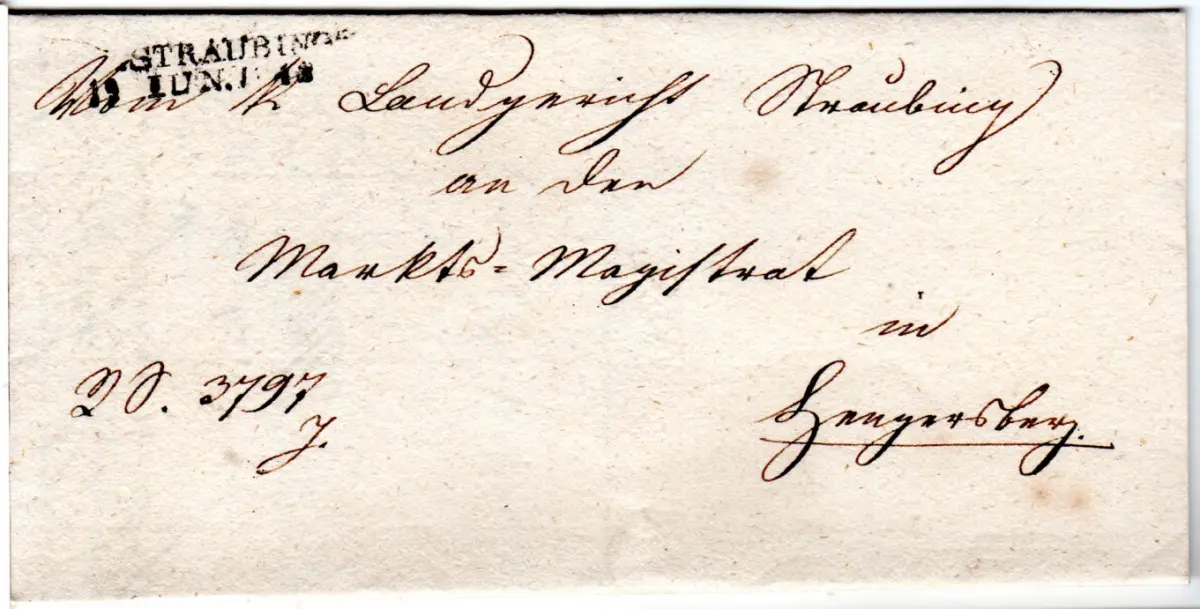 STRAUBING
JUN.
Vom K Landgericht Straubing
an den
Markts=Magistrat
in
Hengersberg.
3797